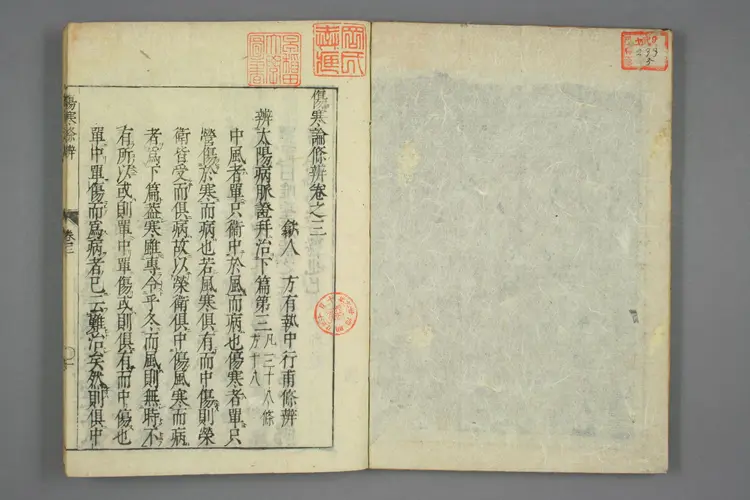 傷寒論條辨卷之三
歙人　方有執中行甫條辨
辨太陽病脈證并治下篇第三
凡三十八條
方十八
中風者單只衛中於風而病也傷寒者單只
營傷於寒而病也若風寒俱有而中傷則榮
衛皆受而俱病故以榮衛俱中傷風寒而病
者爲下篇葢寒雖專令乎冬而風則無時不
有所以或則單中單傷或則俱有而中傷也
單中單傷而爲病者已云難治矣然則俱中
傷寒條辨
卷三